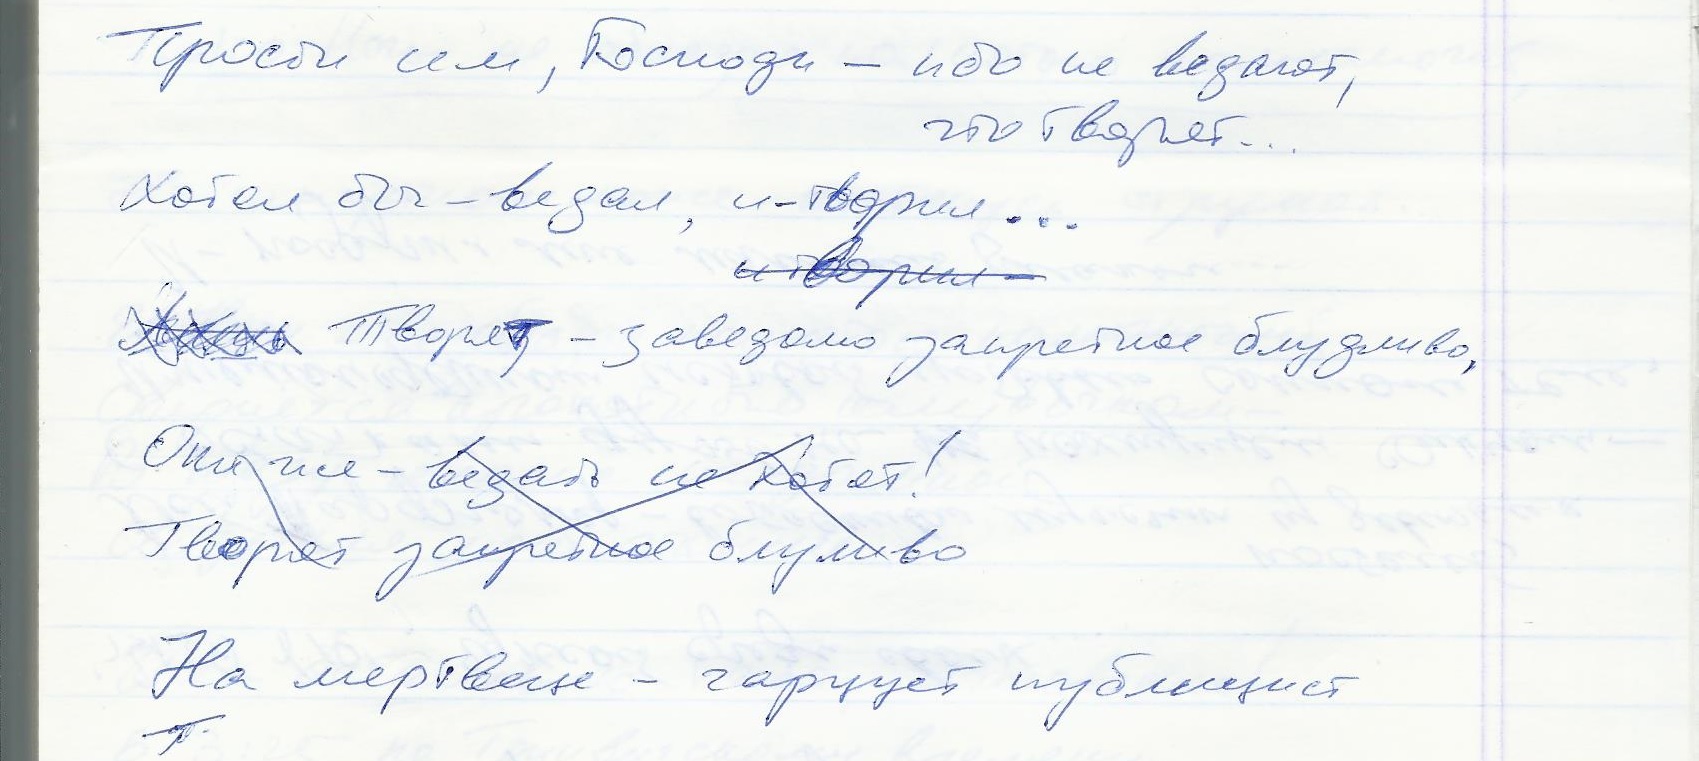 Прости им, Господи – ибо не ведают,
что творят...
Хотел бы – ведал, и – творил...
и творил –
Творят – заведомо запретное блудливо,
Они же – ведать не хотят!
Творят запретное блудливо
На мертвеце – гарцует публицист
Т